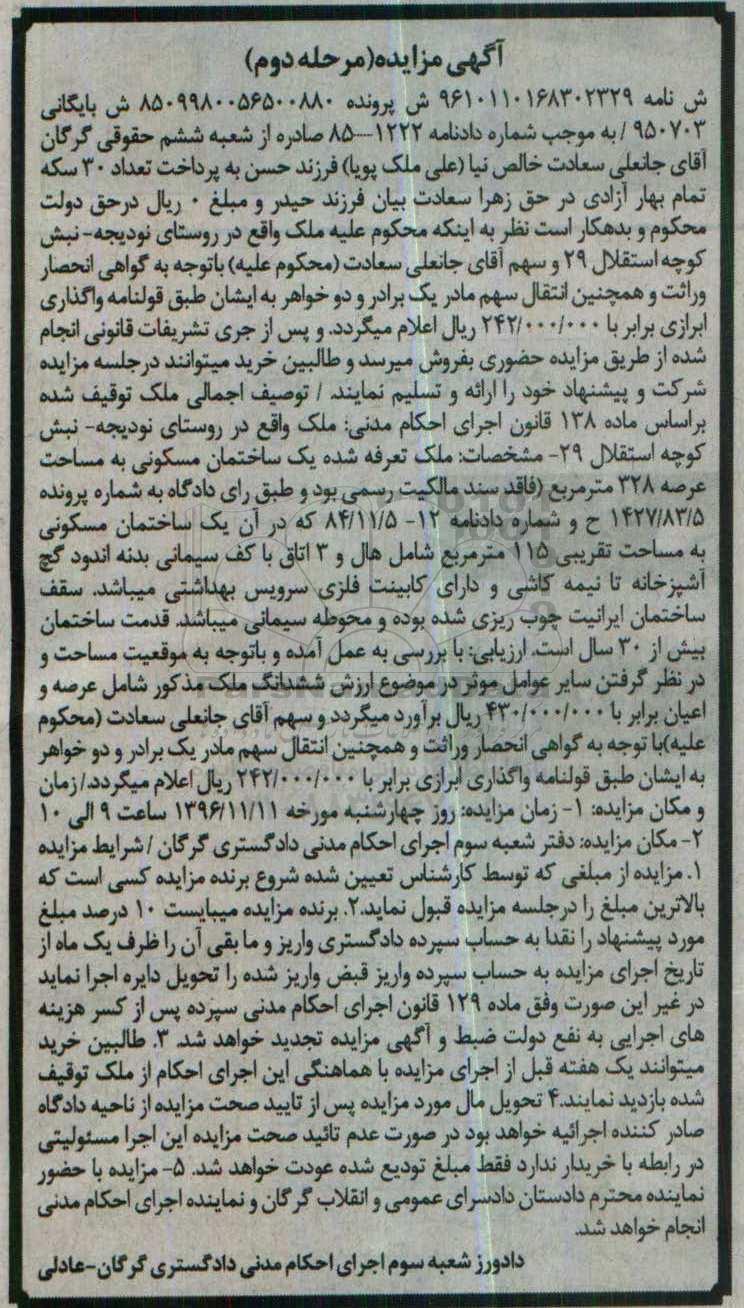 آگهی مزایده(مرحله دوم)
ش نامه ۹۶۱۰۱۱۰۱۶۸۳۰۲۳۲۹ ش پرونده ۸۵۰۹۹۸۰۰۵۶۵۰۰۸۸۰ ش بایگانی
۹۵۰۷۰۳ / به موجب شماره دادنامه ۱۲۲۲---۸۵ صادره از شعبه ششم حقوقی گرگان
آقای جانعلی سعادت خالص نیا (علی ملک پویا) فرزند حسن به پرداخت تعداد ۳۰ سکه
تمام بهار آزادی در حق زهرا سعادت بیان فرزند حیدر و مبلغ ۰ ریال درحق دولت
محکوم و بدهکار است نظر به اینکه محکوم علیه ملک واقع در روستای نودیجه- نبش
کوچه استقلال ۲۹ و سهم آقای جانعلی سعادت (محکوم علیه) باتوجه به گواهی انحصار
وراثت و همچنین انتقال سهم مادر یک برادر و دو خواهر به ایشان طبق قولنامه واگذاری
ابرازی برابر با ۲۴۲/۰۰۰/۰۰۰ ریال اعلام میگردد. و پس از جری تشریفات قانونی انجام
شده از طریق مزایده حضوری بفروش میرسد و طالبین خرید میتوانند درجلسه مزایده
شرکت و پیشنهاد خود را ارائه و تسلیم نمایند. / توصیف اجمالی ملک توقیف شده
براساس ماده ۱۳۸ قانون اجرای احکام مدنی: ملک واقع در روستای نودیجه- نبش
کوچه استقلال ۲۹- مشخصات: ملک تعرفه شده یک ساختمان مسکونی به مساحت
عرصه ۳۲۸ مترمربع (فاقد سند مالکیت رسمی بود و طبق رای دادگاه به شماره پرونده
۱۴۲۷/۸۳/۵ ح و شماره دادنامه ۱۲- ۸۴/۱۱/۵ که در آن یک ساختمان مسکونی
به مساحت تقریبی ۱۱۵ مترمربع شامل هال و ۳ اتاق با کف سیمانی بدنه اندود گچ
آشپزخانه تا نیمه کاشی و دارای کابینت فلزی سرویس بهداشتی میباشد. سقف
ساختمان ایرانیت چوب ریزی شده بوده و محوطه سیمانی میباشد. قدمت ساختمان
بیش از ۳۰ سال است. ارزیابی: با بررسی به عمل آمده و باتوجه به موقعیت مساحت و
در نظر گرفتن سایر عوامل موثر در موضوع ارزش ششدانگ ملک مذکور شامل عرصه و
اعیان برابر با ۴۳۰/۰۰۰/۰۰۰ ریال برآورد میگردد و سهم آقای جانعلی سعادت (محکوم
علیه)با توجه به گواهی انحصار وراثت و همچنین انتقال سهم مادر یک برادر و دو خواهر
به ایشان طبق قولنامه واگذاری ابرازی برابر با ۲۴۲/۰۰۰/۰۰۰ ریال اعلام میگردد./ زمان
و مکان مزایده: ۱- زمان مزایده: روز چهارشنبه مورخه ۱۳۹۶/۱۱/۱۱ ساعت ۹ الی ۱۰
۲- مکان مزایده: دفتر شعبه سوم اجرای احکام مدنی دادگستری گرگان / شرایط مزایده
۱. مزایده از مبلغی که توسط کارشناس تعیین شده شروع برنده مزایده کسی است که
بالاترین مبلغ را درجلسه مزایده قبول نماید.۲. برنده مزایده میبایست ۱۰ درصد مبلغ
مورد پیشنهاد را نقدا به حساب سپرده دادگستری واریز و ما بقی آن را ظرف یک ماه از
تاریخ اجرای مزایده به حساب سپرده واریز قبض واریز شده را تحویل دایره اجرا نماید
در غیر این صورت وفق ماده ۱۲۹ قانون اجرای احکام مدنی سپرده پس از کسر هزینه
های اجرایی به نفع دولت ضبط و آگهی مزایده تجدید خواهد شد. ۳. طالبین خرید
میتوانند یک هفته قبل از اجرای مزایده با هماهنگی این اجرای احکام از ملک توقیف
شده بازدید نمایند.۴ تحویل مال مورد مزایده پس از تایید صحت مزایده از ناحیه دادگاه
صادر کننده اجرائیه خواهد بود در صورت عدم تائید صحت مزایده این اجرا مسئولیتی
در رابطه با خریدار ندارد فقط مبلغ تودیع شده عودت خواهد شد. ۵- مزایده با حضور
نماینده محترم دادستان دادسرای عمومی و انقلاب گرگان و نماینده اجرای احکام مدنی
انجام خواهد شد.
دادورز شعبه سوم اجرای احکام مدنی دادگستری گرگان-عادلی